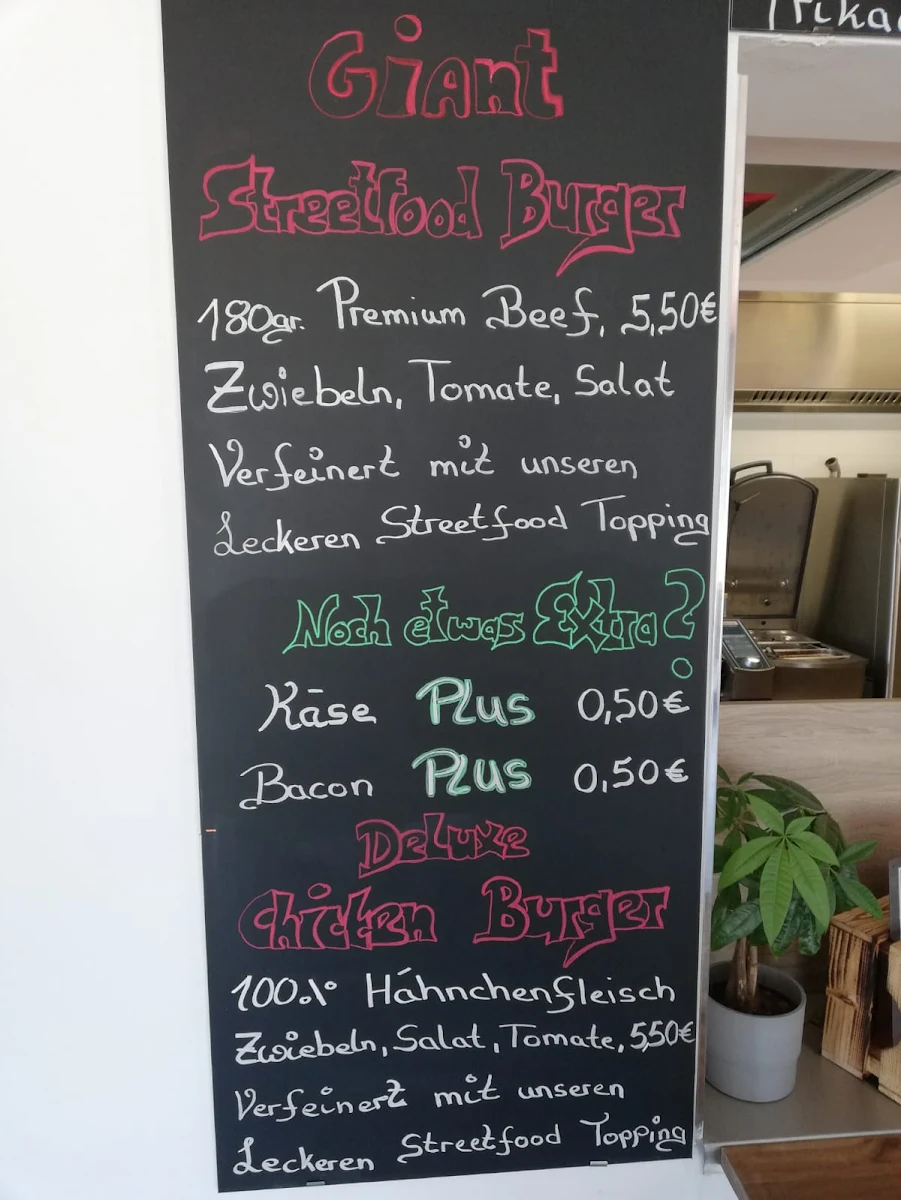 Giant
Streetfood Burger
180gr. Premium Beef, 5,50€
Zwiebeln, Tomate, Salat
Verfeinert mit unseren
Leckeren Streetfood Topping
Noch etwas Extra?
Käse Plus 0,50€
Bacon Plus 0,50€
Deluxe
Chicken Burger
100% Hähnchenfleisch
Zwiebeln, Salat, Tomate, 5,50€
Verfeinert mit unseren
Leckeren Streetfood Topping